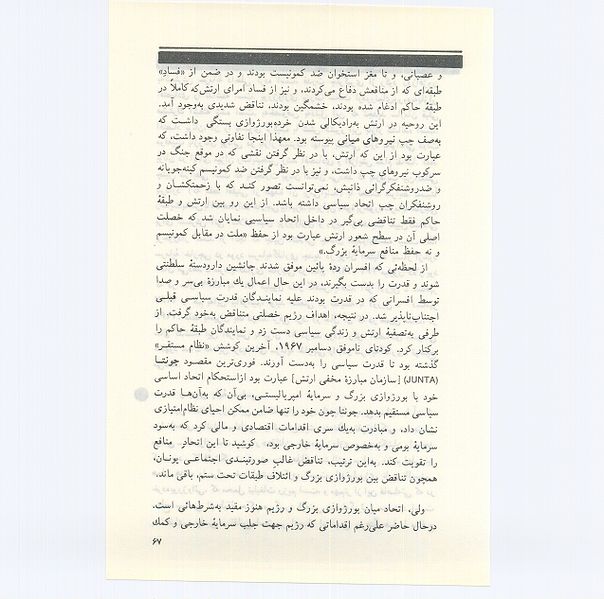 و عصبانی، و تا مغز استخوان ضد کمونیست بودند و در ضمن از «فسادِ»
طبقه‌ای که از منافعش دفاع می‌کردند، و نیز از فساد امرای ارتش‌که کاملاً در
طبقهٔ حاکم ادغام شده بودند، خشمگین بودند، تناقض شدیدی به‌وجود آمد.
این روحیه در ارتش به‌رادیکالی شدن خرده‌بورژوازی بستگی داشت که
به‌صف چپ نیروهای میانی پیوسته بود. معهذا اینجا تفاوتی وجود داشت، که
عبارت بود از این که ارتش، با در نظر گرفتن نقشی که در موقع جنگ در
سرکوب نیروهای چپ داشت، و نیز با در نظر گرفتن ضد کمونیسم کینه‌جویانه
و ضدروشنفکرگرائی ذاتیش، نمی‌توانست تصور کند که با زحمتکشان و
روشنفکران چپ اتحاد سیاسی داشته باشد. از این رو بین ارتش و طبقهٔ
حاکم فقط تناقضی پی‌گیر در داخل اتحاد سیاسیی نمایان شد که خصلت
اصلی آن در سطح شعور ارتش عبارت بود از حفظ «ملت در مقابل کمونیسم
و نه حفظ منافع سرمایهٔ بزرگ.»
از لحظه‌ئی که افسران ردهٔ پائین موفق شدند جانشین دارودستهٔ سلطنتی
شوند و قدرت را بدست بگیرند، در این حال اعمال یك مبارزهٔ بی‌سر و صدا
توسط افسرانی که در قدرت بودند علیه نمایندگان قدرت سیاسی قبلی
اجتناب‌ناپذیر شد. در نتیجه، اهداف رژیم خصلتی متناقض به‌خود گرفت. از
طرفی به‌تصفیهٔ ارتش و زندگی سیاسی دست زد و نمایندگان طبقهٔ حاکم را
برکنار کرد. کودتای ناموفق دسامبر ۱۹۶۷، آخرین کوشش «نظام مستقر»
گذشته بود تا قدرت سیاسی را به‌دست آورند. فوری‌ترین مقصود جونتا
(JUNTA) [سازمان مبارزهٔ مخفی ارتش] عبارت بود ازاستحکام اتحاد اساسی
خود با بورژوازی بزرگ و سرمایهٔ امپریالیستی، بی‌آن که به‌آن‌ها قدرت
سیاسی مستقیم بدهد. جونتا چون خود را تنها ضامن ممکن احیای نظام‌امتیازی
نشان داد، و مبادرت به‌یك سری اقدامات اقتصادی و مالی کرد که به‌سود
سرمایهٔ بومی و به‌خصوص سرمایهٔ خارجی بود، کوشید تا این اتحاد منافع
را تقویت کند. به‌این ترتیب، تناقض غالبِ صورتبندی اجتماعی یونان،
همچون تناقض بین بورژوازی بزرگ و ائتلاف طبقات تحت ستم، باقی ماند.
ولی، اتحاد میان بورژوازی بزرگ و رژیم هنوز مقید به‌شرط‌هائی است.
درحال حاضر علی‌رغم اقداماتی که رژیم جهت جلب سرمایهٔ خارجی و کمك
۶۷